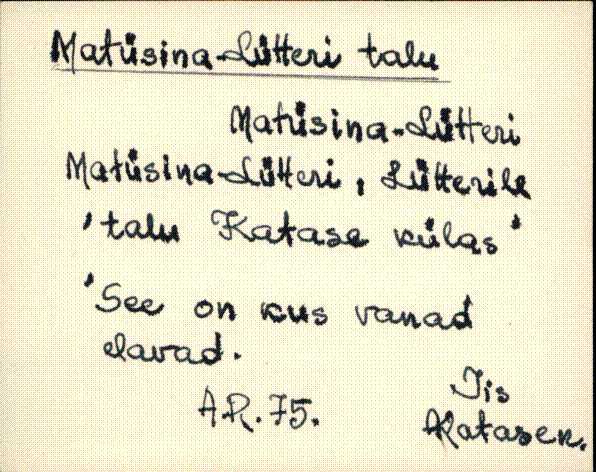 Matüsina-Lütteri talu
Matüsina-Lütteri
Matüsina-Lütteri, Lütterile
'talu Katase külas'
'See on kus vanad
elavad.
A.R. 75.
Jis
Katasen.